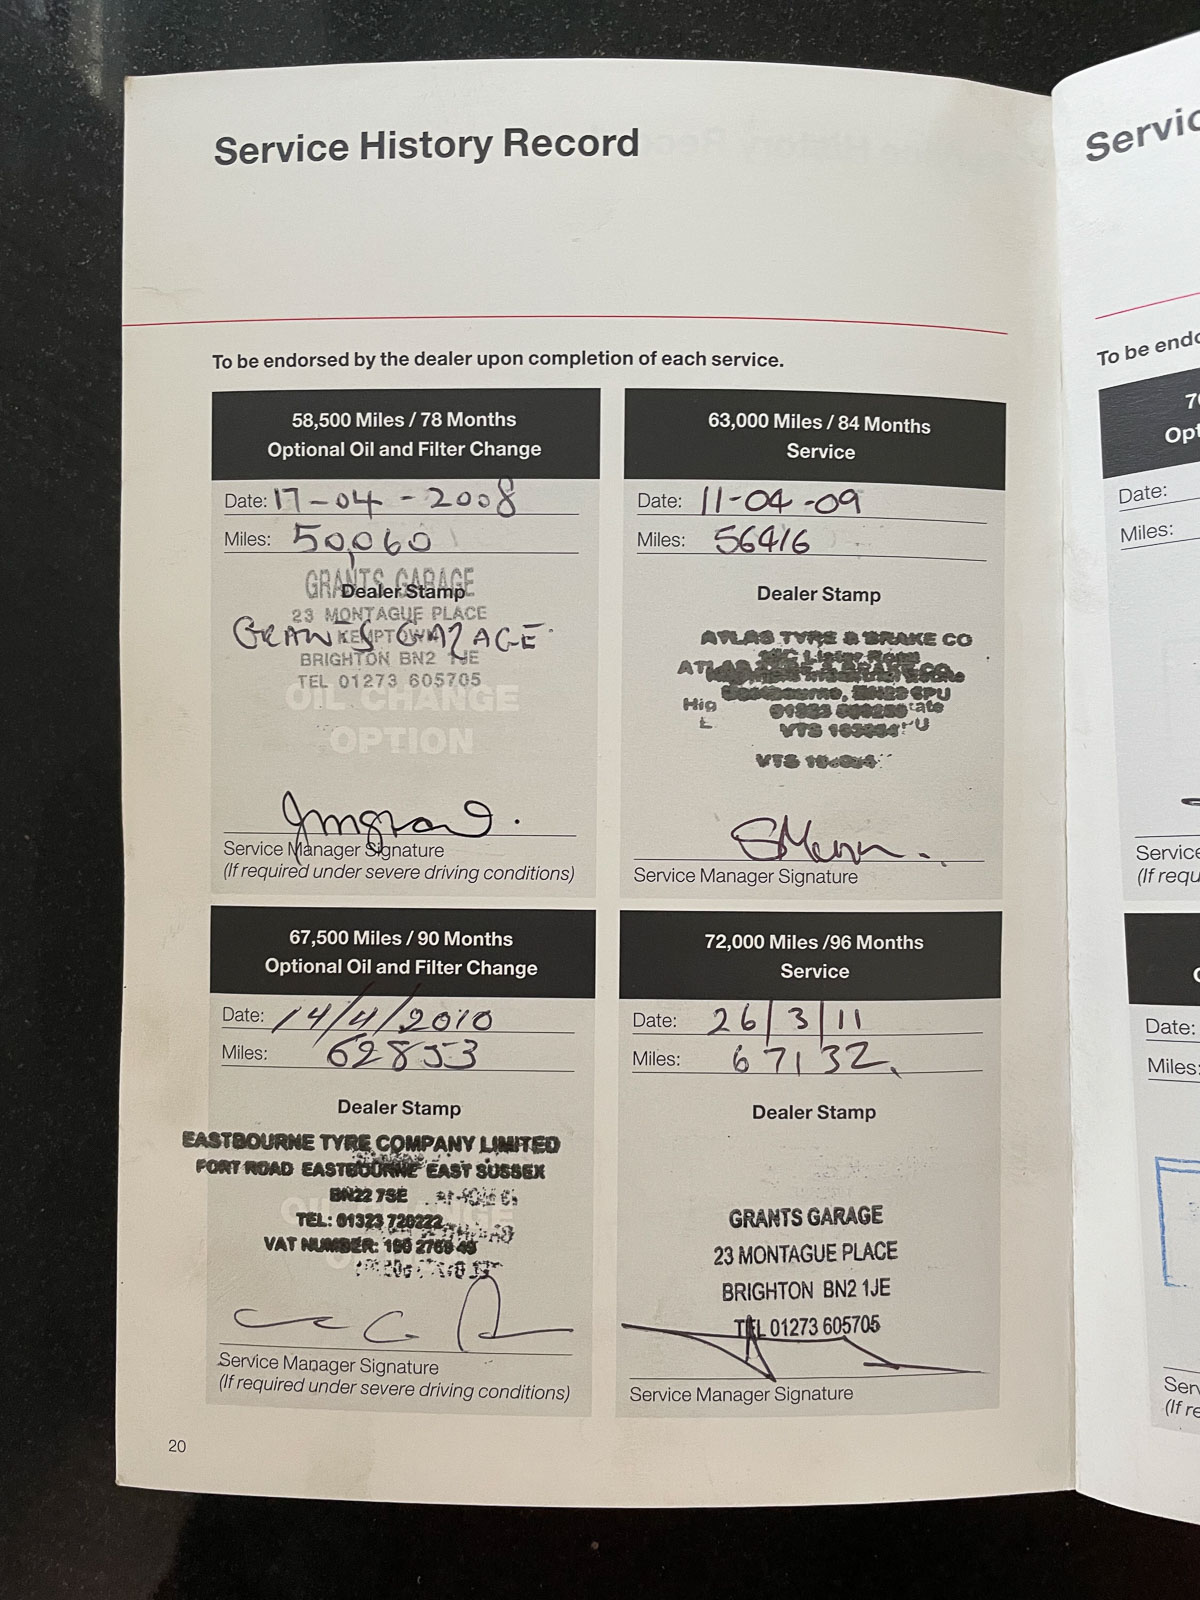 Service History Record
To be endorsed by the dealer upon completion of each service.
58,500 Miles / 78 Months
Optional Oil and Filter Change
Date: 17-04-2008
Miles: 50,060
GRANTS GARAGE
Dealer Stamp
23 MONTAGUE PLACE
KEMPTOWN
GRANTS GARAGE
BRIGHTON BN2 1JE
TEL 01273 605705
OIL CHANGE
OPTION
Service Manager Signature
(If required under severe driving conditions)
63,000 Miles / 84 Months
Service
Date: 11-04-09
Miles: 56416
Dealer Stamp
ATLAS TYRE & BRAKE CO
Service Manager Signature
67,500 Miles / 90 Months
Optional Oil and Filter Change
Date: 14/4/2010
Miles: 62853
Dealer Stamp
EASTBOURNE TYRE COMPANY LIMITED
FORT ROAD EASTBOURNE EAST SUSSEX
BN22 7SE
TEL: 01323 720222
VAT NUMBER: 190 2769 49
Service Manager Signature
(If required under severe driving conditions)
72,000 Miles /96 Months
Service
Date: 26/3/11
Miles: 67132
Dealer Stamp
GRANTS GARAGE
23 MONTAGUE PLACE
BRIGHTON BN2 1JE
TEL 01273 605705
Service Manager Signature
20
Servic
To be endo
Opt
Date:
Miles:
Service
(If requ
Date:
Miles:
Ser
(If re